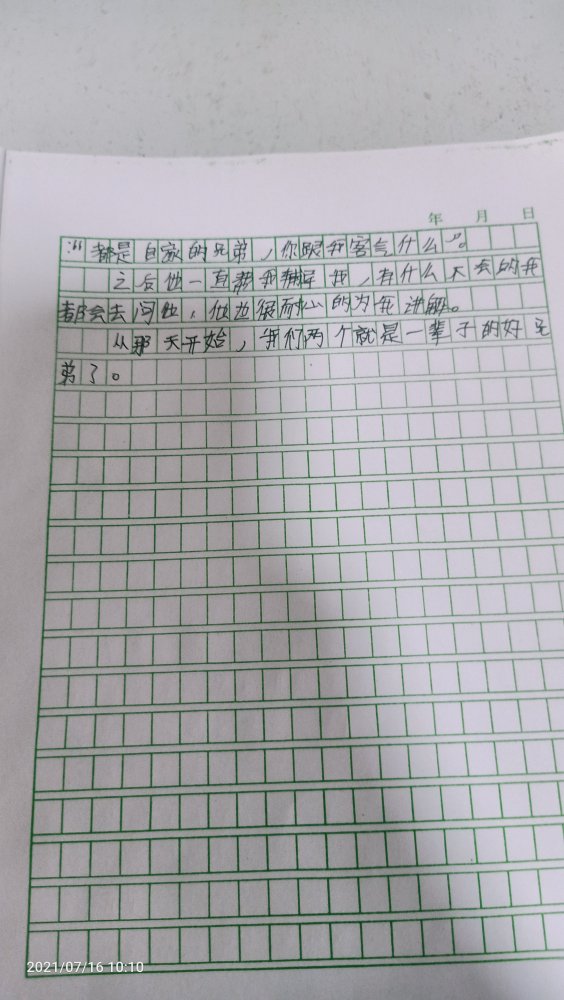 年 月 日
:“都是自家的兄弟,你跟我客气什么”。
之后他一直帮我辅导我,有什么不会的我
都会去问他,他也很耐心的为我讲解。
从那天开始,我们两个就是一辈子的好兄
弟了。
2021/07/16 10:10